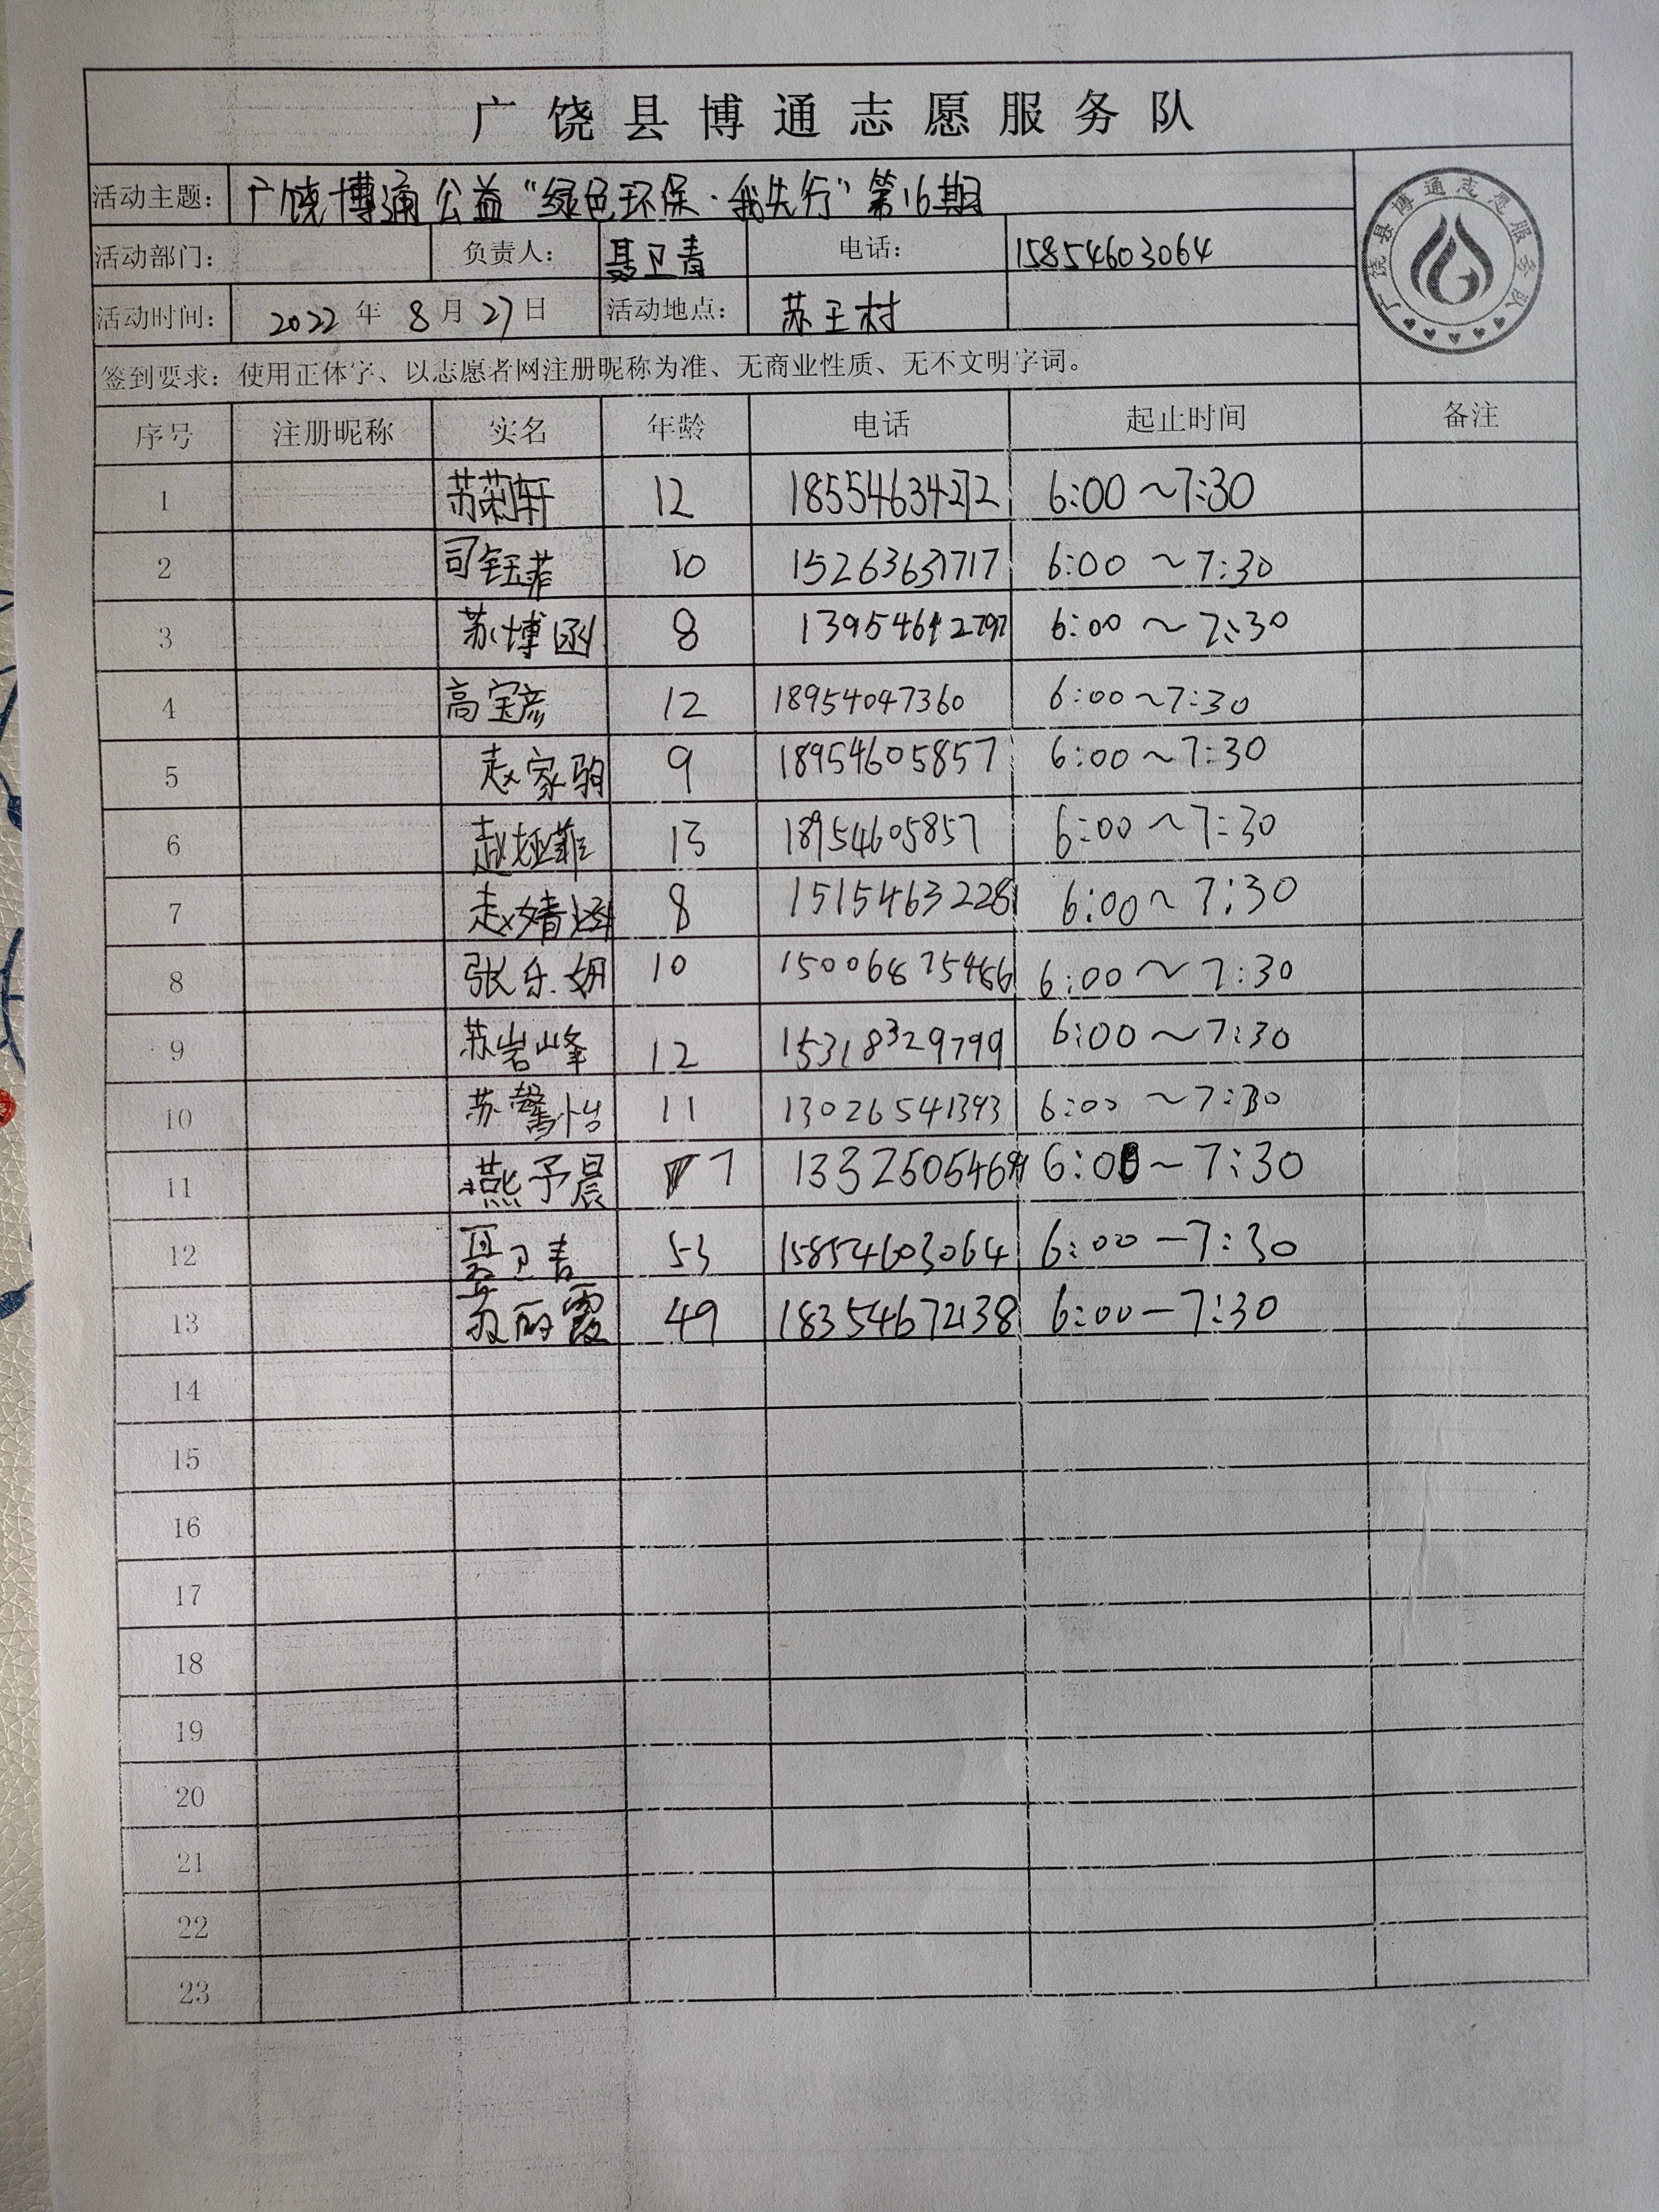 广饶县博通志愿服务队
活动主题： 广饶博通公益“绿色环保·我先行”第16期
活动部门： 负责人： 聂卫青 电话： 15854603064
活动时间： 2022年8月27日 活动地点： 苏王村
广饶县博通志愿服务队
签到要求：使用正体字、以志愿者网注册昵称为准、无商业性质、无不文明字词。
序号 注册昵称 实名 年龄 电话 起止时间 备注
1 苏莉轩 12 18554634272 6:00～7:30
2 司钰菲 10 15263631717 6:00～7:30
3 苏博函 8 6:00～7:30
4 高宝彦 12 18954047360 6:00～7:30
5 赵家驹 9 18954605857 6:00～7:30
6 赵娅菲 13 18954605857 6:00～7:30
7 赵婧涵 8 15154632281 6:00～7:30
8 张乐妍 10 6:00～7:30
9 苏岩峰 12 15318329799 6:00～7:30
10 苏馨怡 11 13026541393 6:00～7:30
11 燕予晨 7 6:00～7:30
12 聂卫青 53 15854603064 6:00－7:30
13 苏丽霞 49 18354672138 6:00－7:30
14
15
16
17
18
19
20
21
22
23